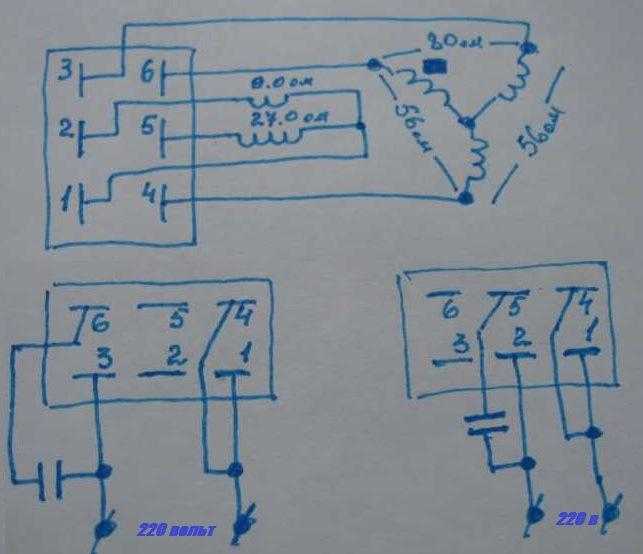 3 6
80 ом
8.0 ом
2 5
27.0 ом
56 ом
56 ом
1 4
6 5 4
3 2 1
6 5 4
3 2 1
220 вольт
220 в